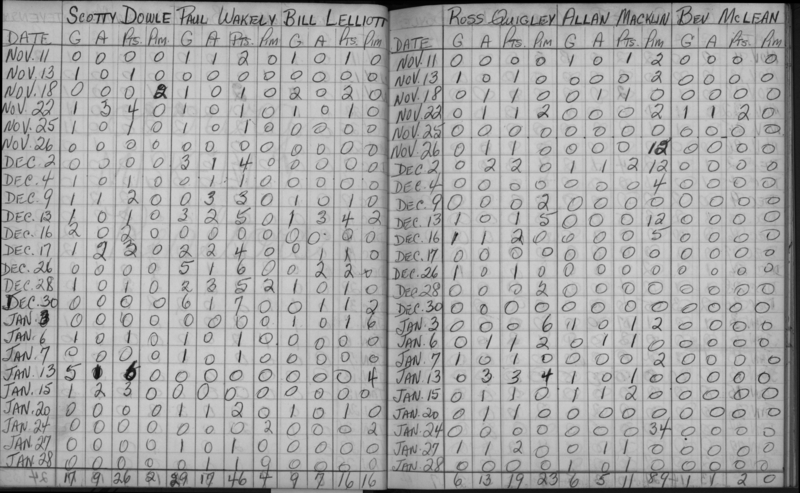 SCOTTY DOWLE PAUL WAKELY BILL LELLIOTT
DATE G A Pts. Pim G A Pts. Pim G A Pts. Pim
NOV. 11 0 0 0 0 1 1 2 0 1 0 1 0
NOV. 13 1 0 1 0 0 0 0 0 0 0 0 0
NOV. 18 0 0 0 2 1 0 1 0 2 0 2 0
NOV. 22 1 3 4 0 1 0 1 0 1 0 1 0
NOV. 25 1 0 1 0 1 0 1 0 0 0 0 0
NOV. 26 0 0 0 0 0 0 0 0 0 0 0 0
DEC. 2 0 0 0 0 3 1 4 0 0 0 0 0
DEC. 4 1 0 1 0 0 1 1 0 0 0 0 0
DEC. 9 1 1 2 0 0 3 3 0 1 0 1 0
DEC. 13 1 0 1 0 3 2 5 0 1 3 4 2
DEC. 16 2 0 2 0 0 0 0 0 0 0 0 0
DEC. 17 1 2 3 0 2 2 4 0 0 1 1 0
DEC. 26 0 0 0 0 5 1 6 0 0 2 2 0
DEC. 28 1 0 1 0 2 3 5 2 1 0 1 0
DEC. 30 0 0 0 0 6 1 7 0 0 1 1 2
JAN. 3 0 0 0 0 0 0 0 0 1 0 1 6
JAN. 6 1 0 1 0 1 0 1 0 0 0 0 0
JAN. 7 0 0 0 0 1 0 1 0 0 0 0 0
JAN. 13 5 1 6 0 0 0 0 0 0 0 0 4
JAN. 15 1 2 3 0 0 0 0 0 0 0 0 0
JAN. 20 0 0 0 0 1 1 2 0 1 0 1 0
JAN. 24 0 0 0 0 0 0 0 2 0 0 0 2
JAN. 27 0 0 0 0 1 0 1 0 0 0 0 0
JAN. 28 0 0 0 0 0 1 1 0 0 0 0 0
17 9 26 2 29 17 46 4 9 7 16 16
ROSS QUIGLEY ALLAN MACKLIN BEN MCLEAN
DATE G A Pts. Pim G A Pts. Pim G A Pts. Pim
NOV. 11 0 0 0 0 1 0 1 2 0 0 0 0
NOV. 13 1 0 1 0 0 0 0 2 0 0 0 0
NOV. 18 0 1 1 0 0 1 1 0 0 0 0 0
NOV. 22 0 1 1 2 0 0 0 2 1 1 2 0
NOV. 25 0 0 0 0 0 0 0 0 0 0 0 0
NOV. 26 0 1 1 0 0 0 0 12 0 0 0 0
DEC. 2 0 2 2 0 1 1 2 12 0 0 0 0
DEC. 4 0 0 0 0 0 0 0 4 0 0 0 0
DEC. 9 0 0 0 2 0 0 0 0 0 0 0 0
DEC. 13 1 0 1 5 0 0 0 12 0 0 0 0
DEC. 16 1 1 2 0 0 0 0 5 0 0 0 0
DEC. 17 0 0 0 0 0 0 0 0 0 0 0 0
DEC. 26 1 0 1 0 0 0 0 0 0 0 0 0
DEC. 28 0 0 0 2 0 0 0 0 0 0 0 0
DEC. 30 0 0 0 0 0 0 0 0 0 0 0 0
JAN. 3 0 0 0 6 1 0 1 2 0 0 0 0
JAN. 6 0 1 1 2 0 1 1 0 0 0 0 0
JAN. 7 1 0 1 0 0 0 0 2 0 0 0 0
JAN. 13 0 3 3 4 1 0 1 0 0 0 0 0
JAN. 15 0 1 1 0 1 1 2 0 0 0 0 0
JAN. 20 0 1 1 0 0 0 0 0 0 0 0 0
JAN. 24 0 0 0 0 0 0 0 34 0 0 0 0
JAN. 27 1 1 2 0 0 1 1 0 0 0 0 0
JAN. 28 0 0 0 0 1 0 1 0 0 0 0 0
6 13 19 23 6 5 11 89 1 1 2 0